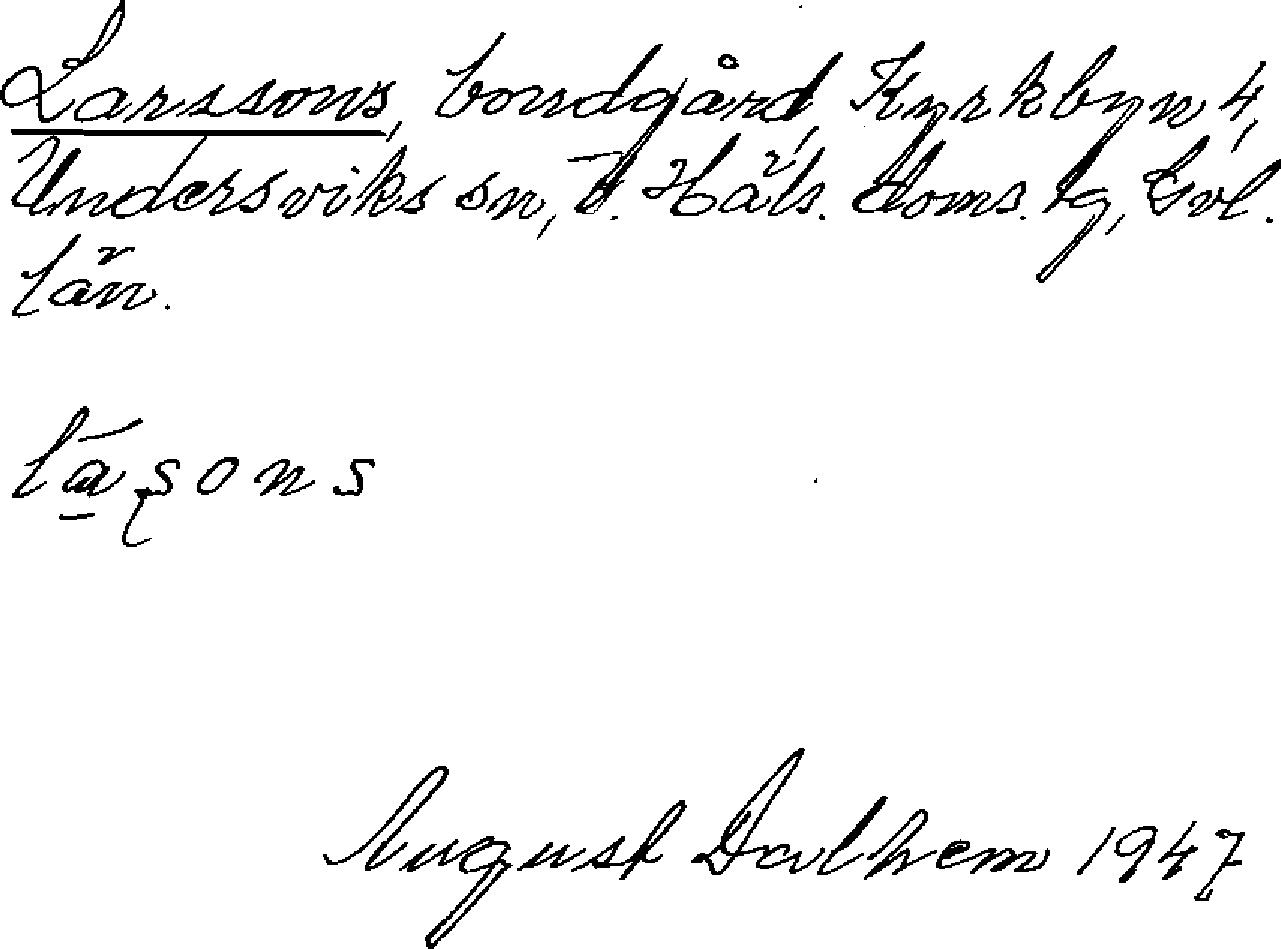 Larssons, bondgård, Kyrkbyn 4,
Undersviks sn, V. Häls. doms. tg, Gvl.
län.
la̱ʂons
August Dalhem 1947